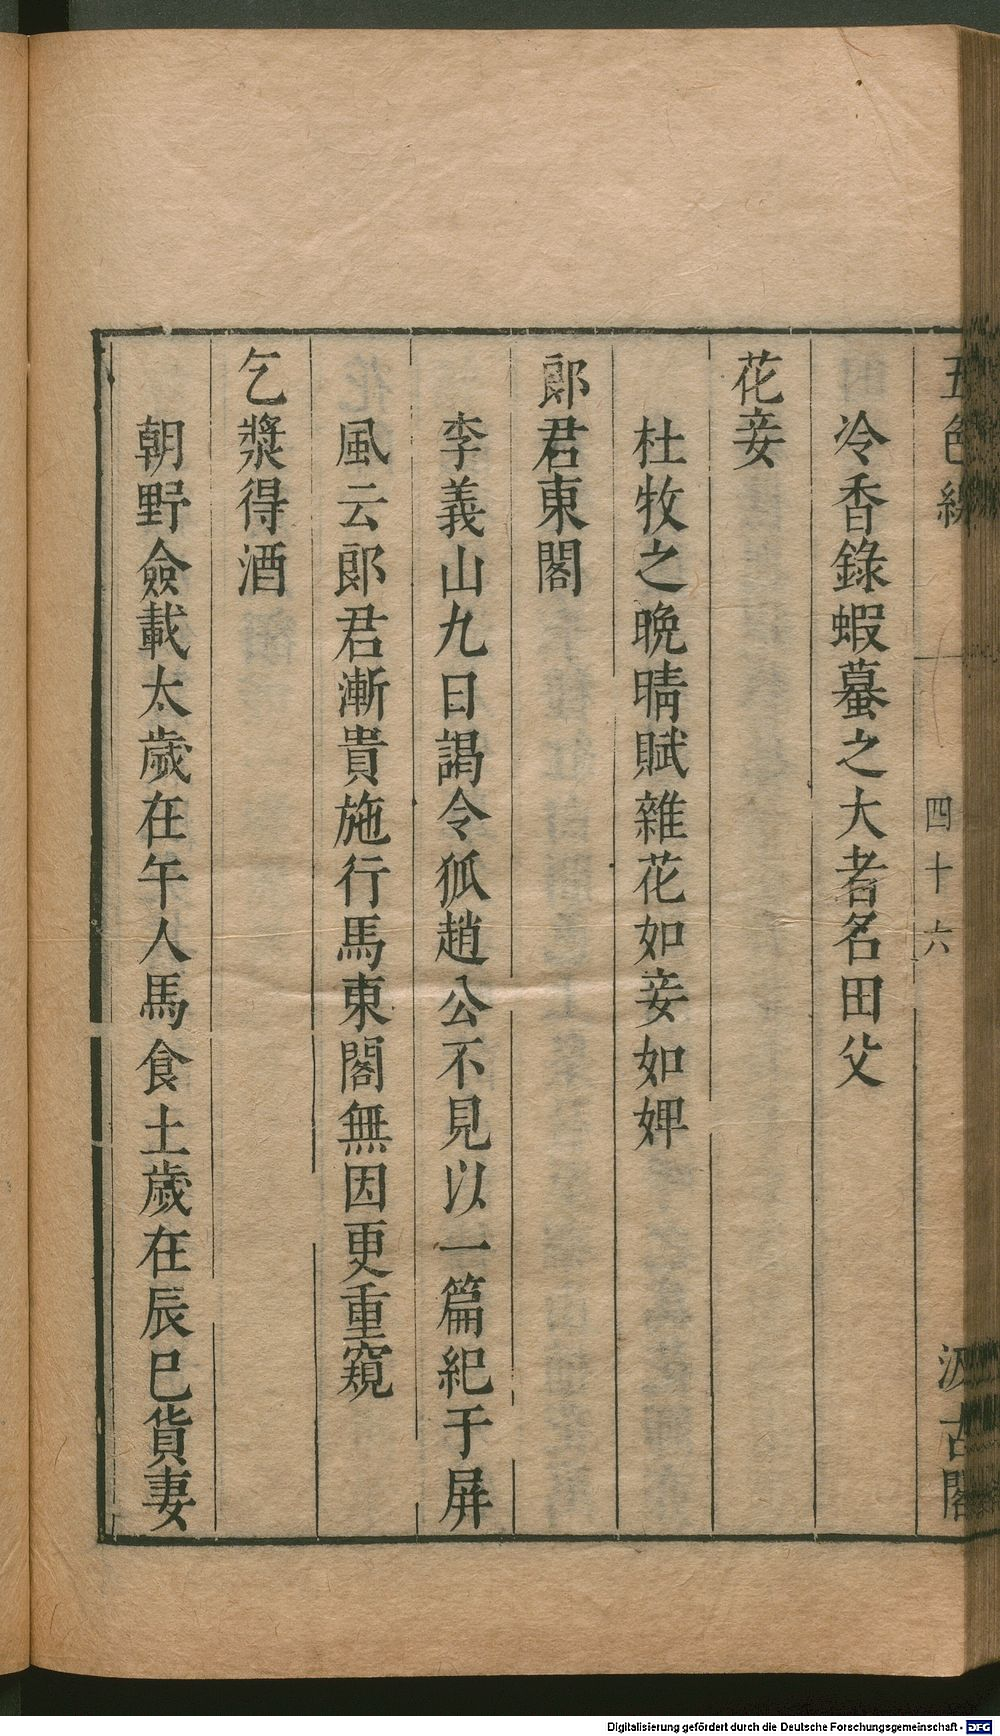 五色線
四十六
汲古閣
冷香錄蝦蟇之大者名田父
花妾
杜牧之晩晴賦雜花如妾如婢
郞君東閣
李義山九日謁令狐趙公不見以一篇紀于屏
風云郞君漸貴施行馬東閣無因更重窺
乞漿得酒
朝野僉載太歲在午人馬食土歲在辰巳貨妻
Digitalisierung gefördert durch die Deutsche Forschungsgemeinschaft - DFG